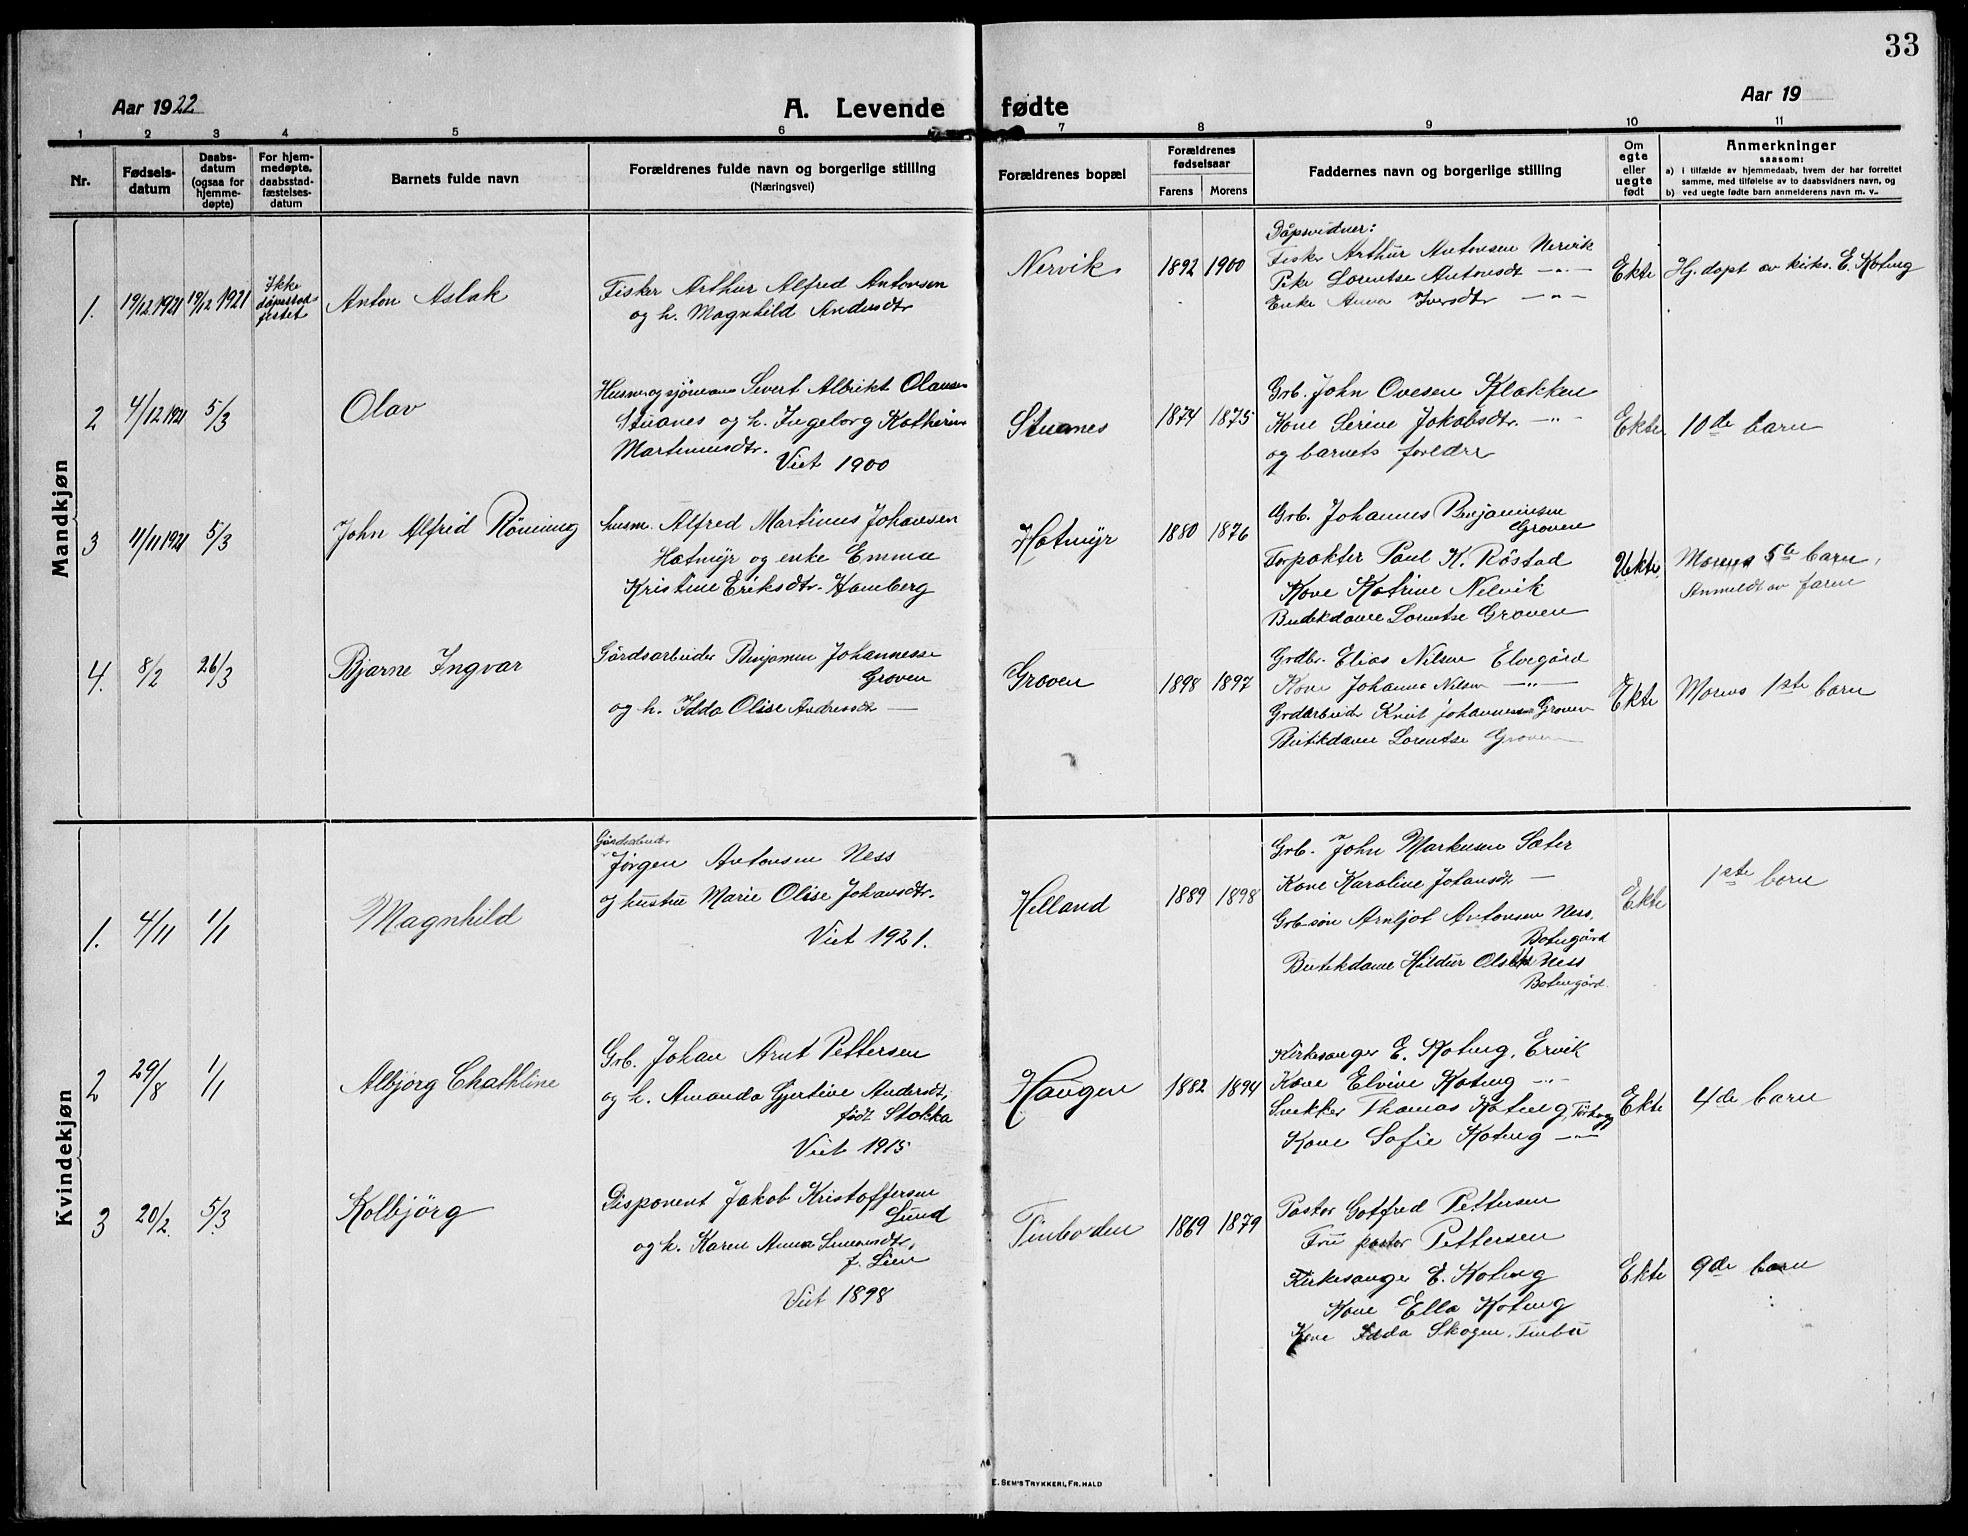 33
Aar 1922
A. Levende fødte
Aar 19
1 2 3 4 5 6 7 8 9 10 11
Nr.
Fødsels-
datum
Daabs-
datum
(ogsaa for
hjemme-
døpte)
For hjem-
medøpte,
daabsstad-
fæstelses-
datum
Barnets fulde navn
Forældrenes fulde navn og borgerlige stilling
(Næringsvei)
Forældrenes bopæl
Forældrenes
fødselsaar
Farens Morens
Faddernes navn og borgerlige stilling
Om
egte
eller
uegte
født
Anmerkninger
saasom:
a) i tilfælde av hjemmedaab, hvem der har forrettet
samme, med tilføielse av to daabsvidners navn, og
b) ved uegte fødte barn anmelderens navn m. v..
Mandkjøn
1. 19/12 1921 19/12 1921
Ikke
dåpsstad-
festet
Anton Aslak
Fisker Arthur Alfred Antonsen
og h. Magnhild Andersdtr
Nervik
1892 1900
Dåpsvidner:
Fisker Arthur Antonsen Nervik
Pike Lorentse Antonsdt -"-
Enke Anna Iversdtr -"-
Ekte
Hj. døpt av kirks. E. Koteng
2 4/12 1921 5/3
Olav
Husm. og sjømann Sivert Albrikt Olausen
Stuanes og h. Ingeborg Katherine
Martinusdtr.
Viet 1900
Stuanes
1874 1875
Grb. John Ovesen Klakken
Kone Serine Jakobsdtr. -"-
og barnets foreldre
Ekte
10de barn
3 11/11 1921 5/3
John Alfred Röning
husm. Alfred Martinus Johansen
Hatmyr og enke Emma
Kristine Eriksdtr. Hamberg
Hatmyr
1880 1876
Grb. Johannes Benjaminsen
Groven
Forpakter Paul K. Röstad
Kone Katrine Nelvik
Butikdame Lorentse Groven
Uekte
Morens 5te barn,
Anmeldt av faren
4. 8/2 26/3
Bjarne Ingvar
Gårdsarbeider Benjamin Johannesse
Groven
og h. Idda Olise Andreasdt —
Groven
1898 1897
Grdbr. Elias Nilsen Elvegård
Kone Johanna Nilsen -"-
Grdarbeider Knut Johannessen Groven
Butikdame Lorentse Groven
Ekte
Morens 1ste barn
Kvindekjøn
1. 4/11 1/1
Magnhild
Gårdsarbeider
Jørgen Antonsen Ness
og hustru Marie Olise Johansdtr.
Viet 1921.
Helland
1889 1898
Grb. John Markusen Sæter
Kone Karoline Johansdt —
Grb.søn Arnljot Antonsen Ness,
Botngård
Butikdame Hildur Ness
Botngård.
Ekte
1ste barn
2 29/8 1/1
Albjørg Chathline
Grb. Johan Arnt Pettersen
og h. Amanda Gjertine Andersdt,
født Stokka
Viet 1915
Haugen
1882 1894
Kirkesanger E. Koteng, Ervik
Kone Elvine Koteng -"-
Snekker Thomas Koteng,
Kone Sofie Koteng -"-
Ekte
4de barn
3 20/2. 5/3.
Kolbjörg
Disponent Jakob Kristoffersen
Lund
og h. Karen Anna Simonsdtr,
f. Lien
Viet 1898
Tinboden
1869 1879
Pastor Gotfred Pettersen
Fru pastor Pettersen
Kirkesanger E. Koteng
Kone Ella Koteng
Kone Idda Skogen, Tinbu
Ekte
9de barn
E. SEM'S TRYKKERI, FR.HALD